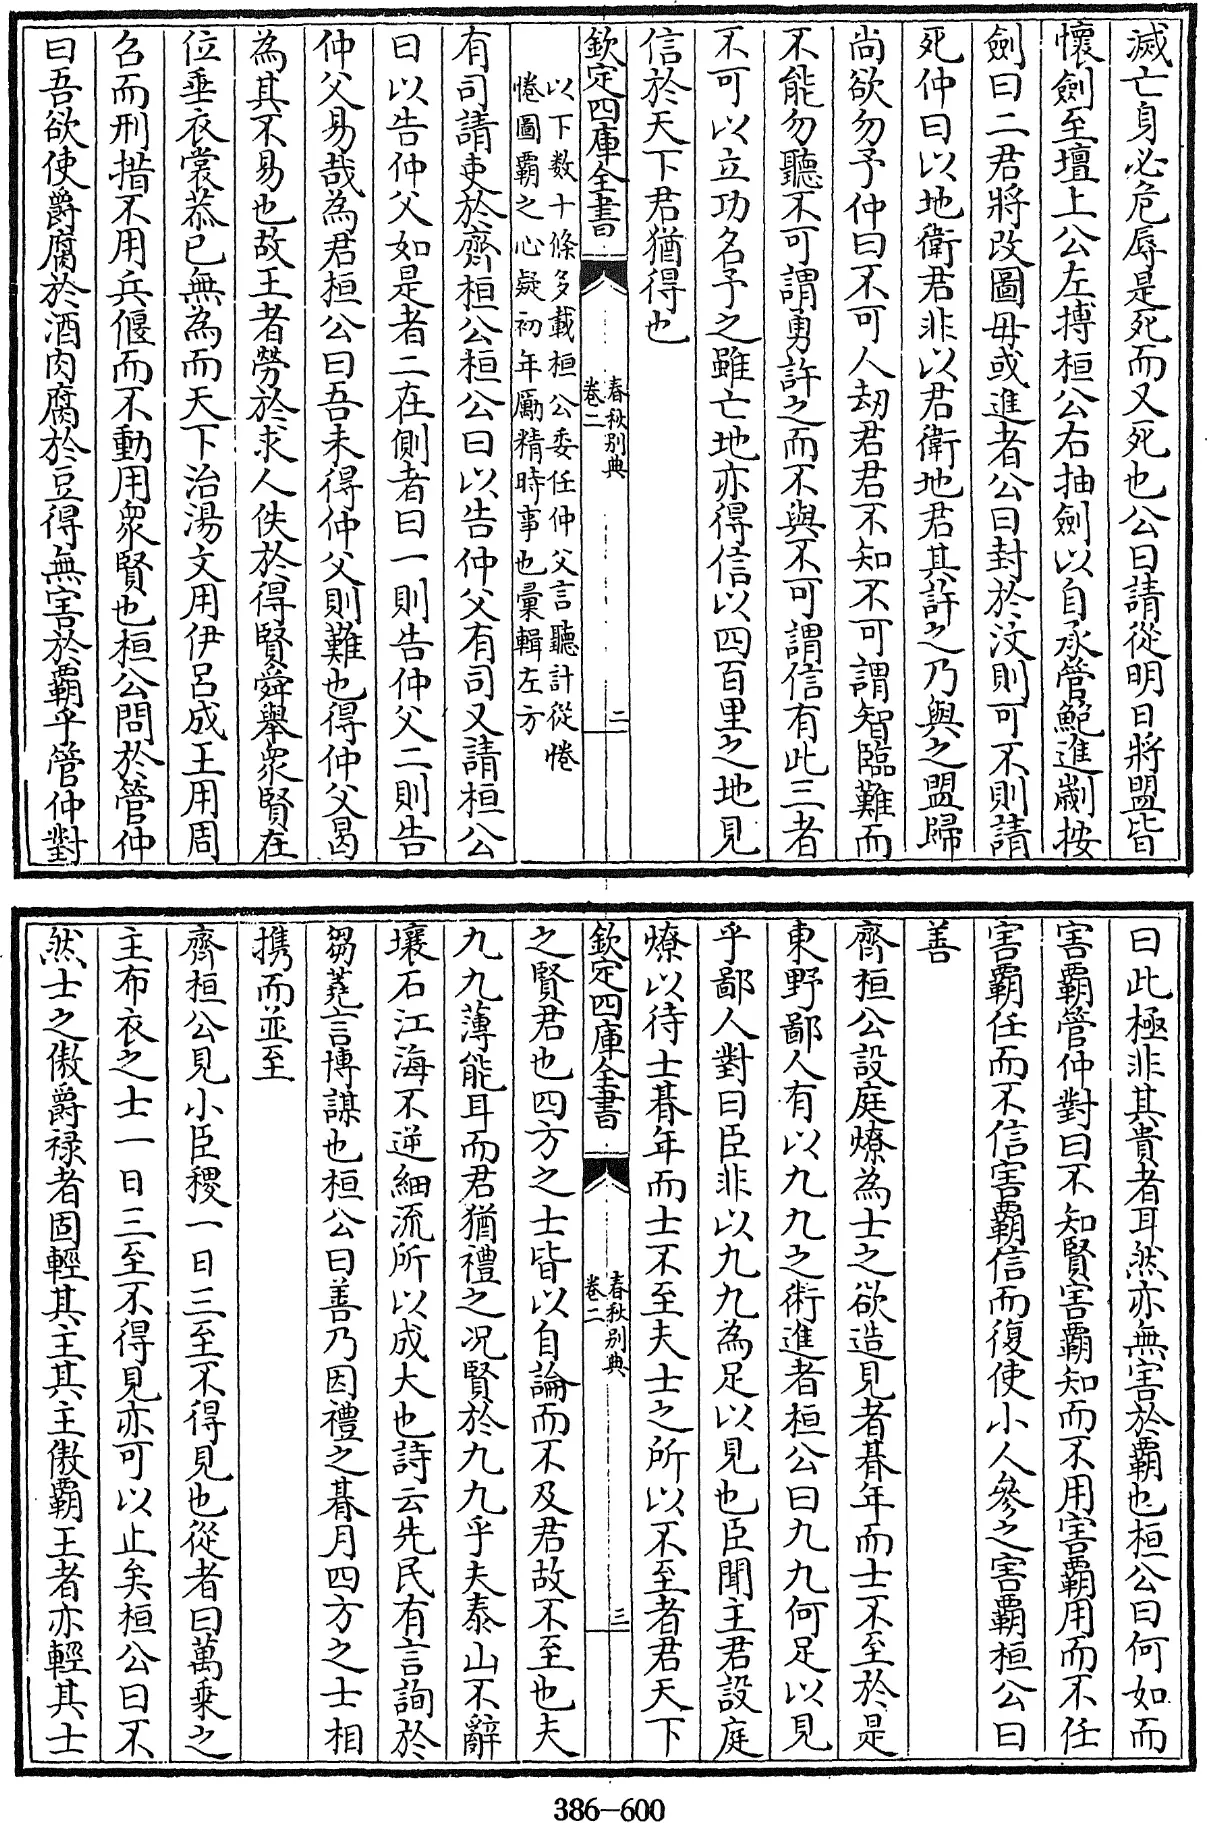 滅亡身必危辱是死而又死也公曰請從明日將盟皆
懐劍至壇上公左摶桓公右抽劍以自承管鮑進劌按
劍曰二君將改圖毋或進者公曰封於汶則可不則請
死仲曰以地衛君非以君衛地君其許之乃與之盟歸
尚欲勿予仲曰不可人刼君君不知不可謂智臨難而
不能勿聽不可謂勇許之而不與不可謂信有此三者
不可以立功名予之雖亡地亦得信以四百里之地見
信於天下君猶得也
欽定四庫全書
春秋别典
卷二
二
以下数十條多載桓公委任仲父言聽計從惓
惓圖覇之心疑初年勵精時事也彚輯左方
有司請吏於齊桓公桓公曰以告仲父有司又請桓公
曰以告仲父如是者二在側者曰一則告仲父二則告
仲父易哉為君桓公曰吾未得仲父則難也得仲父曷
為其不易也故王者勞於求人佚於得賢舜舉衆賢在
位垂衣裳恭已無為而天下治湯文用伊吕成王用周
召而刑措不用兵偃而不動用衆賢也桓公問於管仲
曰吾欲使爵腐於酒肉腐於豆得無害於覇乎管仲對
曰此極非其貴者耳然亦無害於覇也桓公曰何如而
害覇管仲對曰不知賢害覇知而不用害覇用而不任
害覇任而不信害覇信而復使小人參之害覇桓公曰
善
齊桓公設庭燎為士之欲造見者朞年而士不至於是
東野鄙人有以九九之術進者桓公曰九九何足以見
乎鄙人對曰臣非以九九為足以見也臣聞主君設庭
燎以待士朞年而士不至夫士之所以不至者君天下
欽定四庫全書
春秋别典
卷二
三
之賢君也四方之士皆以自論而不及君故不至也夫
九九薄能耳而君猶禮之况賢於九九乎夫泰山不辭
壤石江海不逆細流所以成大也詩云先民有言詢於
芻蕘言博謀也桓公曰善乃因禮之朞月四方之士相
携而並至
齊桓公見小臣稷一日三至不得見也從者曰萬乗之
主布衣之士一日三至不得見亦可以止矣桓公曰不
然士之傲爵禄者固輕其主其主傲覇王者亦輕其士
386-600